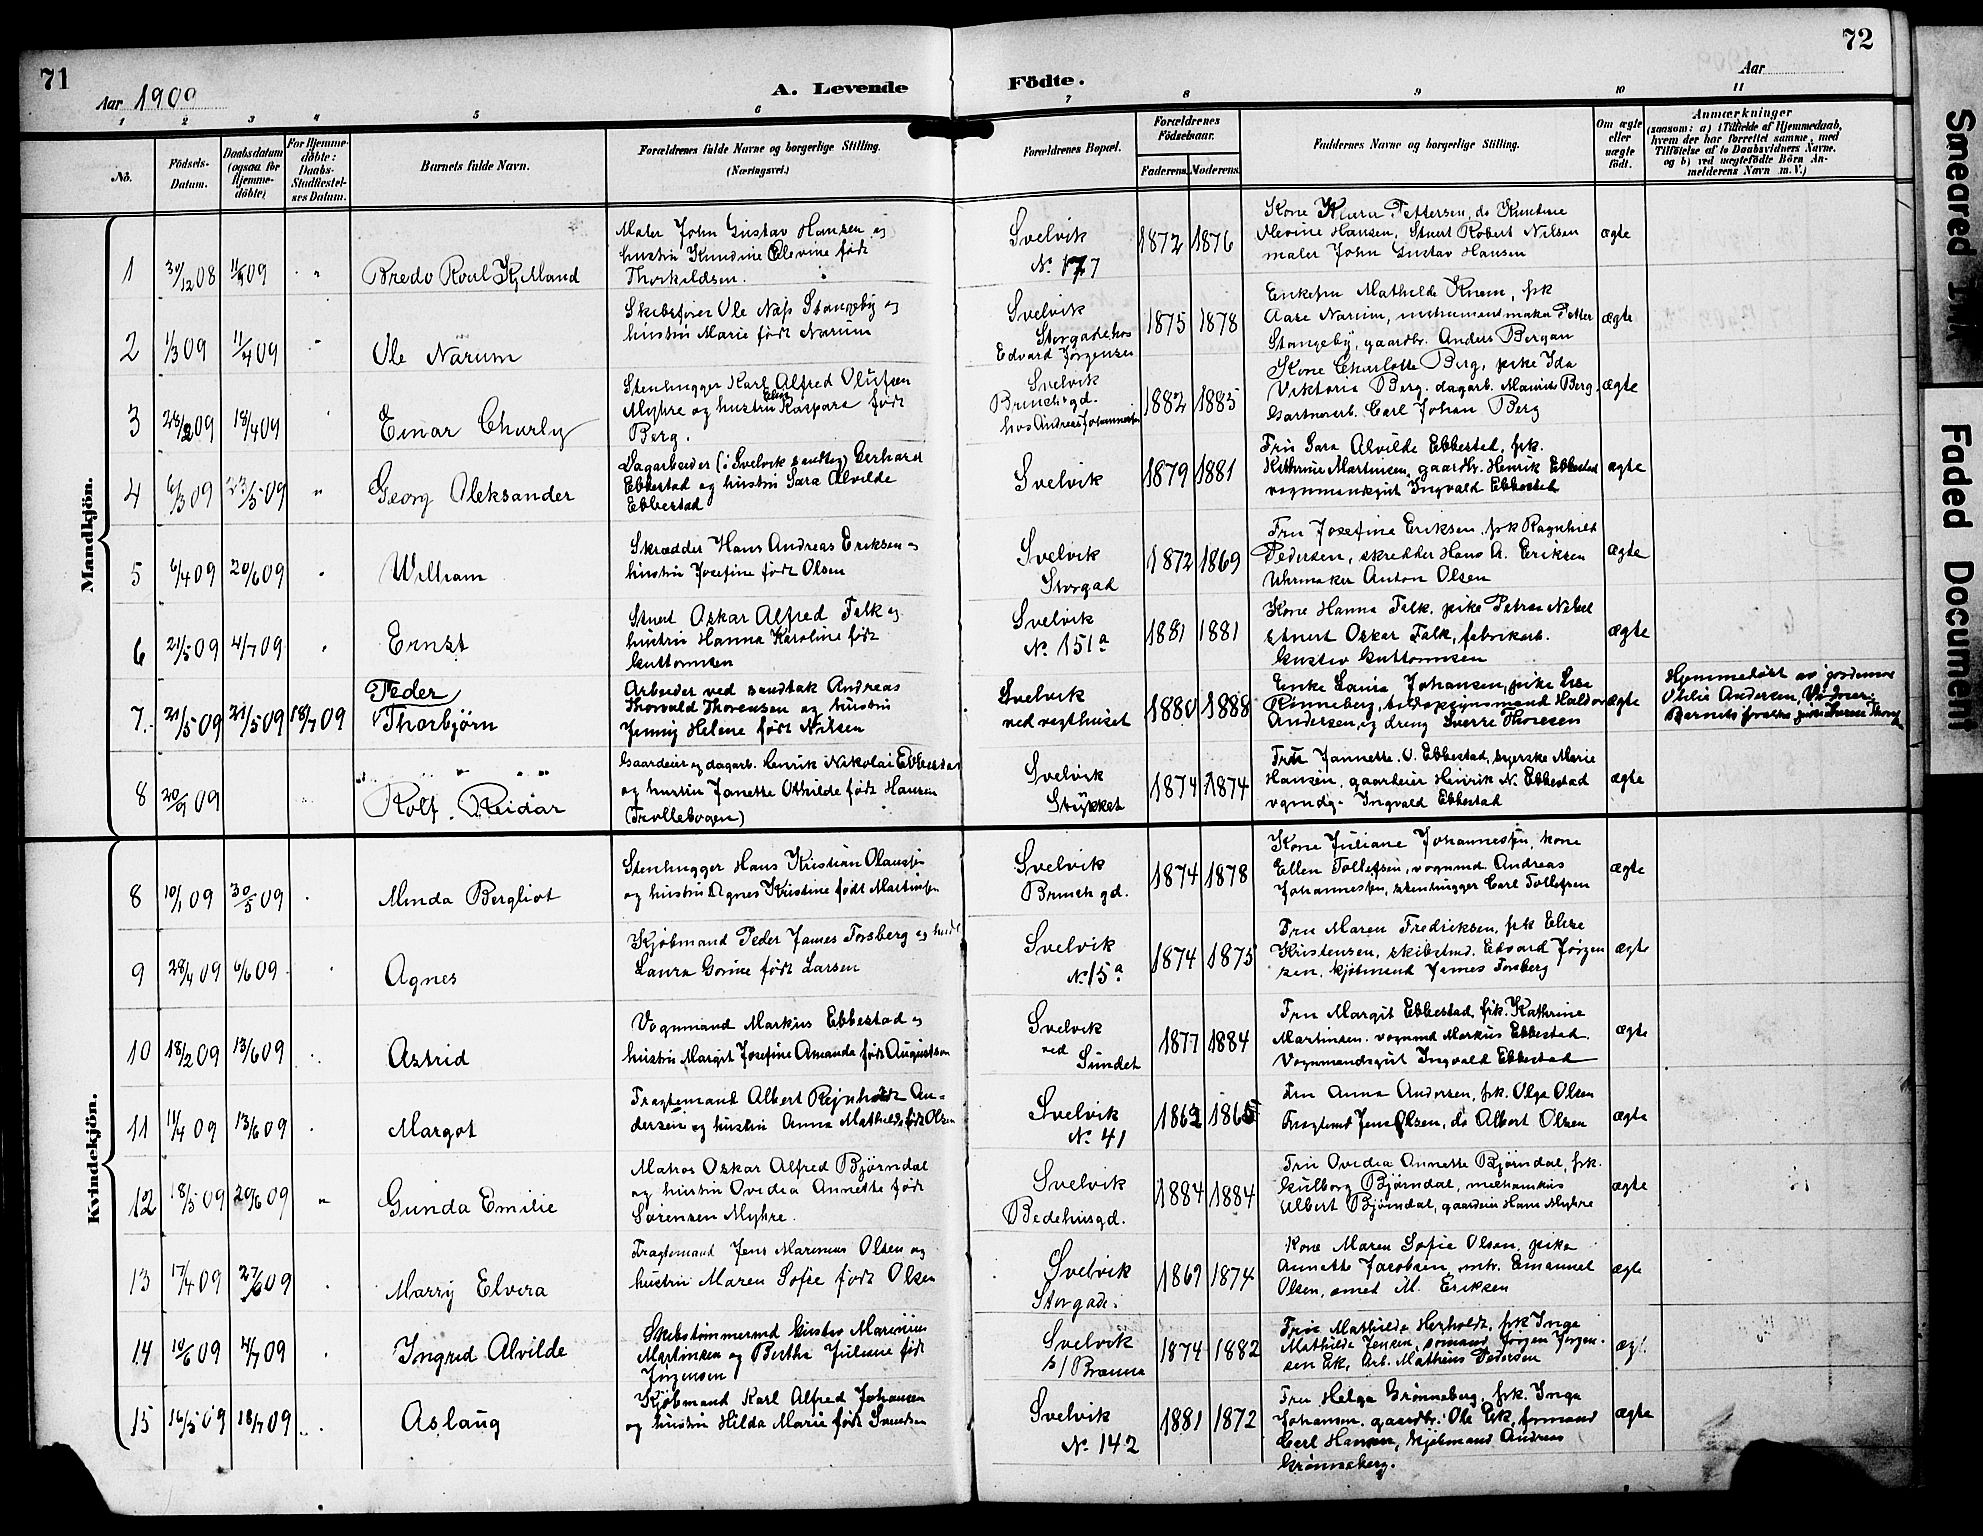 71
Aar 1909
A. Levende
Födte.
72
Aar
1 2 3 4 5 6 7 8 9 10 11
No.
Födsels-
Datum.
Daabsdatum
(ogsaa for
Hjemme-
döbte)
For Hjemme-
döbte:
Daabs-
Stadfæstel-
ses Datum.
Barnets fulde Navn.
Forældrenes fulde Navne og borgerlige Stilling.
(Næringsvei.)
Forældrenes Bopæl.
Forældrenes
Födselsaar.
Faderens. Moderens.
Faddernes Navne og borgerlige Stilling.
Om ægte
eller
uægte
født.
Anmærkninger
(saasom: a) i Tilfælde af Hjemmedaab,
hvem der har forrettet samme, med
Tilföielse af to Daabsvidners Navne,
og b) ved uægtefödte Börn An-
melderens Navn m. V.)
Mandkjön.
1 30/12 08 11/4 09 Bredo Roul Kjelland
Maler John Gustav Hansen og
hustru Kundine Elevine født
Thorkildsen.
Svelvik
No. 177
1872 1876
Kone Klara Pettersen, do Kundine
Elevine Hansen, Stuert Robert Nilsen
maler John Gustav Hansen
ægte
2 1/3 09 11/4 09 Ole Narum
Skibsfører Ole Næss Stangeby og
hustru Marie født Narum
Svelvik
Storgade, hos
Edvard Jørgensen
1875 1878
Enkefru Mathilde Knem, frk
Aase Narum, instrumentmaker Petter
Stangeby, gaardbr. Anders Bergan
ægte
3 28/2 09 18/4 09 Einar Charly
Stenhugger Karl Alfred Olufsen
Myhre og hustru Elise Kaspara født
Berg.
Svelvik
Brinchsgd.
hos Andreas Johannessen
1882 1885
Kone Charlotte Berg, pike Ida
Viktoria Berg, dagarb. Mauritz Berg,
Gartnerarb. Carl Johan Berg
ægte
4 6/3 09 23/5 09 Georg Aleksander
Dagarbeider (i Svelvik sandtag) Gerhard
Ebbestad og hustru Sara Alvilde
Ebbestad
Svelvik
1879 1881
Fru Sara Alvilde Ebbestad, frk.
Kathrine Martinsen, gaardbr. Henrik Ebbestad
vognmandsgut Ingvald Ebbestad
ægte
5 6/4 09 20/6 09 William
Skrædder Hans Andreas Eriksen og
hustru Josefine født Olsen
Svelvik
Storgad
1872 1869
Fru Josefine Eriksen, frk Ragnhild
Pedersen, skredder Hans A. Eriksen
Uhrmaker Anton Olsen
ægte
6 21/5 09 4/7 09 Ernst
Stuert Oskar Alfred Falk og
hustru Hanna Karoline født
Guttormsen
Svelvik
No. 151a
1881 1881
Kone Hanna Falk, pike Petra
Stuert Oskar Falk, fabrikarb.
Gustav Guttormsen
ægte
7. 21/5 09 21/5 09 18/7 09 Peder
Thorbjørn
Arbeider ved sandtak Andreas
Thorvald Thoresen og hustru
Jenny Helene født Nilsen
Svelvik
ved vegthuset
1880 1888
Enke Laura Johansen, pike Lise
Rønneberg, tilsynsmand Haldor
Andersen, og dreng Sverre Thoresen
ægte
Hjemmedøbt av jordemor
Othilie Andersen, Vidner:
Barnets forældre
8 20/9 09 Rolf Reidar
Gaardeier og dagarb. Henrik Nikolai Ebbestad
og hustru Janette Othilde født Hansen
(Trollebogen)
Svelvik
Stykket
1874 1874
Fru Jannette O. Ebbestad, syerske Marie
Hansen, gaardeier Hinrik N. Ebbestad
vgmdg. Ingvald Ebbestad
ægte
Kvindekjön.
8 10/1 09 30/5 09 Minda Bergliot
Stenhugger Hans Kristian Olaussen
og hustru Agnes Kristine født Martinsen
Svelvik
Brinch gd.
1874 1878
Kone Juliane Johannessen, kone
Ellen Tollefsen, vognmd Andreas
Johannessen, stenhugger Carl Tollefsen
ægte
9 28/4 09 6/6 09 Agnes
Kjøbmand Peder James Forsberg og hust
Laura Gorine født Larsen
Svelvik
No. 15a
1874 1875
Fru Maren Fredriksen, frk Elise
Kristensen, skibstmd. Edvard Jørgen
sen, kjøbmand James Forsberg
ægte
10 18/2 09 13/6 09 Astrid
Vognmand Markus Ebbestad og
hustru Margit Josefine Amanda født Augustson
Svelvik
ved
Sundet
1877 1884
Fru Margit Ebbestad, frk. Kathrine
Martinsen, vognmd Markus Ebbestad.
Vognmandsgut Ingvald Ebbestad
ægte
11 11/4 09 13/6 09 Margot
Fragtemand Albert Reinholdt An-
dersen og hustru Anna Mathilde født Olsen
Svelvik
No. 41
1862 1865
Fru Anna Andersen, frk. Olga Olsen
Fragtemd Jens Olsen, do Albert Olsen
ægte
12 18/5 09 20/6 09 Gunda Emilie
Matros Oskar Alfred Bjørndal
og hustru Ovedia Annette født
Sørensen Myhre.
Svelvik
Bedehusgd.
1884 1884
Fru Ovedia Annette Bjørndal, frk.
Gulborg Bjørndal, mekanikus
Albert Bjørndal, gaardeier Hans Myhre
ægte
13 17/4 09 27/6 09 Marry Elvira
Fragtemand Jens Marenius Olsen og
hustru Maren Sofie født Olsen
Svelvik
Storgade.
1869 1874
Kone Maren Sofie Olsen, pike
Annette Jacobsen, mtr. Emanuel
Olsen, smed M. Eriksen
ægte
14 10/6 09 4/7 09 Ingrid Alvilde
Skibstømmermd Gustav Marenius
Martinsen og Bertha Juliane født
Jørgensen
Svelvik
p/ Brænna
1874 1882
Fru Mathilde Herholdt, frk Inga
Mathilde Jensen, sømand Jørgen Jørgen-
sen Ek, Arb. Mathias Pedersen
ægt.
15 16/5 09 18/7 09 Aslaug
Kjøbmand Karl Alfred Johansen
og hustru Hilda Marie født Svendsen
Svelvik
No. 142
1881 1872
Fru Helga Grønneberg, frk. Inga
Johansen, gaardbr. Ole Ek, formand
Carl Hansen, kjøbmand Andreas
Grønneberg.
ægte
Smeared Ink
Faded Document